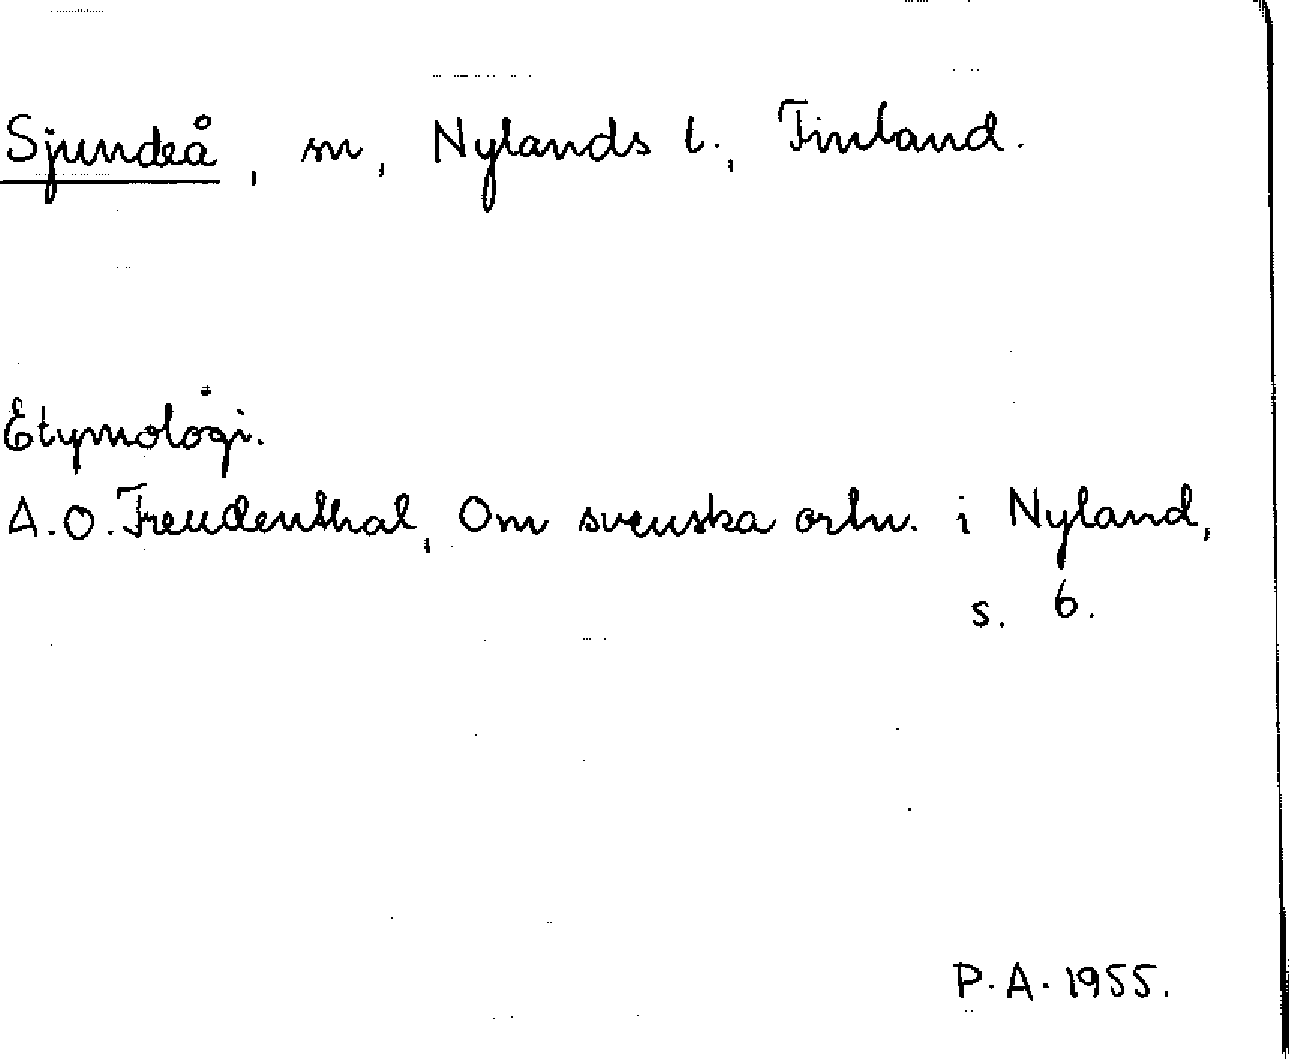 Sjundeå, sn, Nylands l., Finland.
Etymologi.
A.O. Freudenthal, Om svenska ortn. i Nyland,
s. 6.
P.A. 1955.